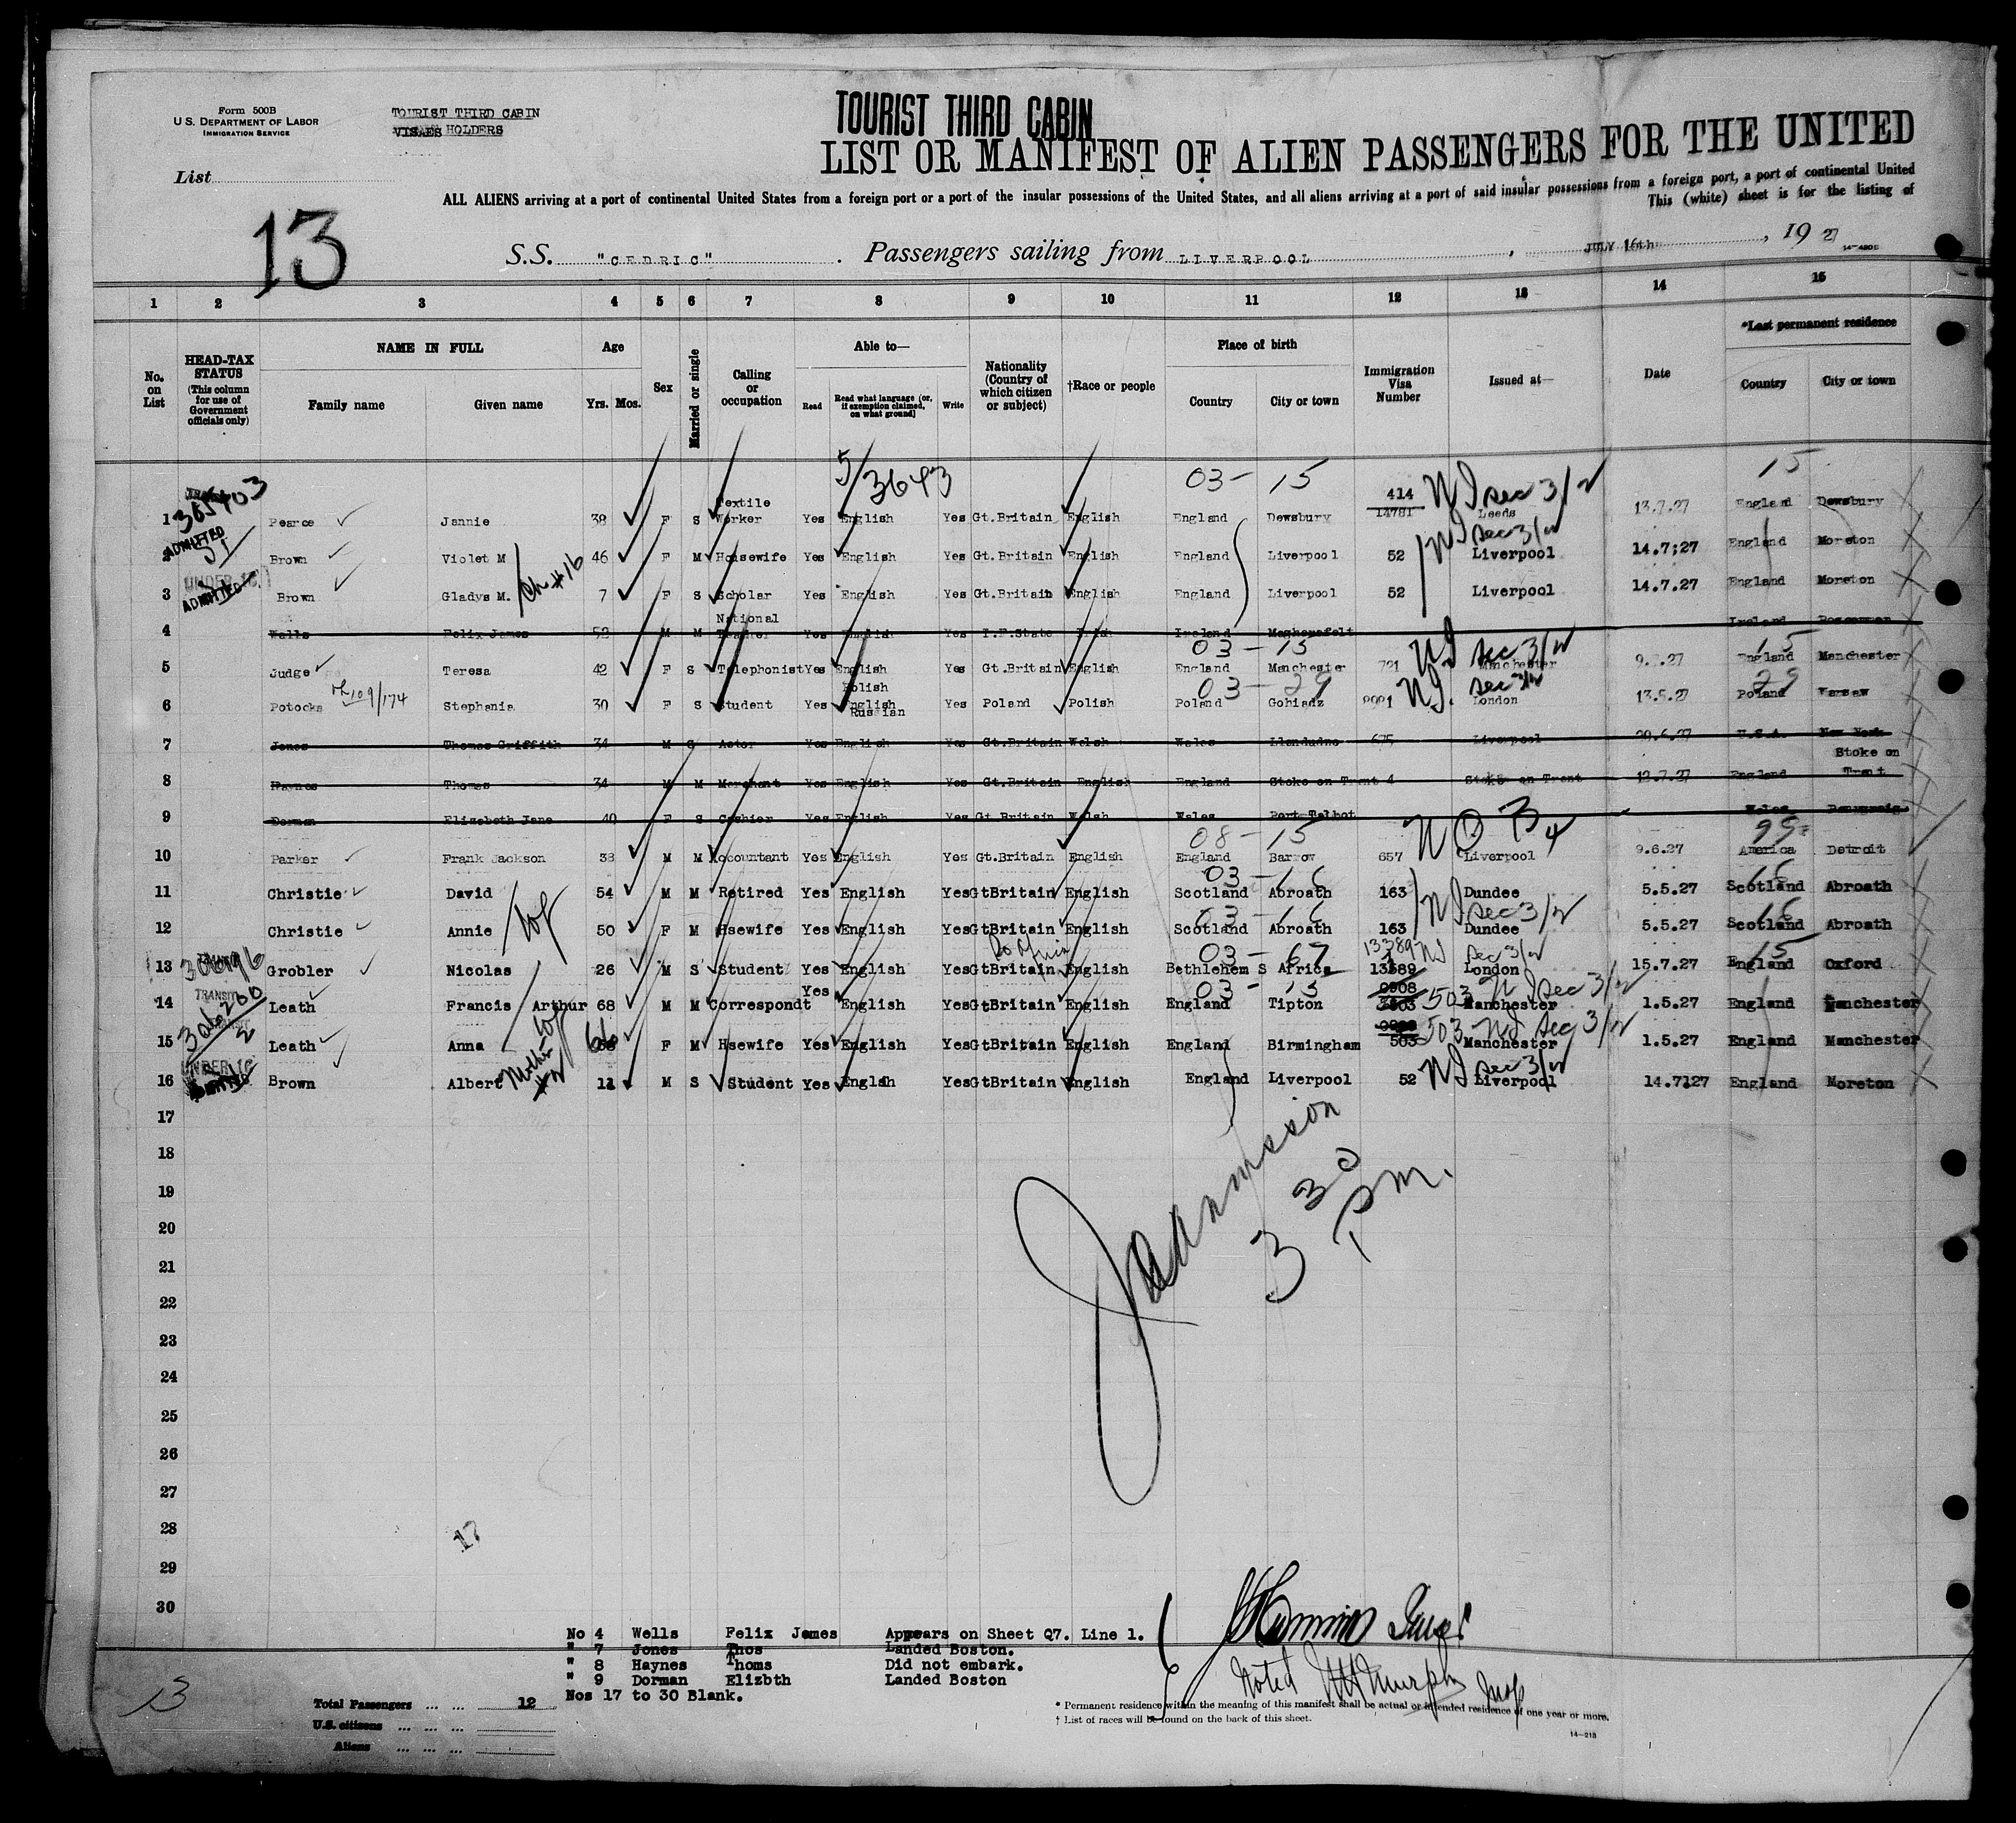 Form 500B
U. S. DEPARTMENT OF LABOR
IMMIGRATION SERVICE
TOURIST THIRD CABIN
HOLDERS
TOURIST THIRD CABIN
LIST OR MANIFEST OF ALIEN PASSENGERS FOR THE UNITED
List
ALL ALIENS arriving at a port of continental United States from a foreign port or a port of the insular possessions of the United States, and all aliens arriving at a port of said insular possessions from a foreign port, a port of continental United
This (white) sheet is for the listing of
13
S.S. "CEDRIC" . Passengers sailing from LIVERPOOL , JULY 16th , 19 27
1 2 3 4 5 6 7 8 9 10 11 12 13 14 15
No. on List
HEAD-TAX STATUS (This column for use of Government officials only)
NAME IN FULL
Family name Given name
Age
Yrs. Mos.
Sex
Married or single
Calling or occupation
Able to—
Read Read what language (or, if exemption claimed, on what ground) Write
Nationality (Country of which citizen or subject)
†Race or people
Place of birth
Country City or town
Immigration Visa Number
Issued at—
Date
*Last permanent residence
Country City or town
5/3643 03 - 15 15
1 Pearce Jannie 38 F S Textile Worker Yes English Yes Gt.Britain English England Dewsbury 414 14781 Leeds 13.7.27 England Dewsbury
ADMITTED
2 Brown Violet M 46 F M Housewife Yes English Yes Gt.Britain English England Liverpool 52 Liverpool 14.7;27 England Moreton
Ch #16
3 Brown Gladys M. 7 F S Scholar Yes English Yes Gt.Britain English England Liverpool 52 Liverpool 14.7.27 England Moreton
4 Wells Felix James 52 M M National Teacher Yes English Yes I.F.State Irish Ireland Magherafelt Ireland
03 - 15 15
5 Judge Teresa 42 F S Telephonist Yes English Yes Gt.Britain English England Manchester 721 Manchester 27 England Manchester
03 - 29 29
6 Potocka 109/174 Stephania 30 F S Student Yes Polish English Russian Yes Poland Polish Poland London 13.5.27 Poland Warsaw
7 Jones Thomas Griffith 34 M S Actor Yes English Yes Gt.Britain Welsh Wales Llandudno 675 Liverpool 20.6.27 U.S.A. New York
8 Haynes Thomas 34 M M Merchant Yes English Yes Gt.Britain English England Stoke on Trent 4 Stoke on Trent 12.7.27 England Stoke on Trent
9 Dorman Elizabeth Jane 40 F S Cashier Yes English Yes Gt.Britain Welsh Wales Port Talbot Wales
08 - 15 99
10 Parker Frank Jackson 38 M M Accountant Yes English Yes Gt.Britain English England Barrow 657 Liverpool 9.6.27 America Detroit
03 - 16 16
11 Christie David 54 M M Retired Yes English Yes GtBritain English Scotland Abroath 163 Dundee 5.5.27 Scotland Abroath
03 - 16 16
12 Christie Annie 50 F M Hsewife Yes English Yes GtBritain English Scotland Abroath 163 Dundee 5.5.27 Scotland Abroath
03 - 67 13389 15
13 Grobler Nicolas 26 M S Student Yes English Yes GtBritain English Bethlehem S Africa 13389 London 15.7.27 England Oxford
TRANSIT
14 Leath Francis Arthur 68 M M Correspondt Yes English Yes GtBritain English England Tipton 503 Manchester 1.5.27 England Manchester
15 Leath Anna 66 F M Hsewife Yes English Yes GtBritain English England Birmingham 503 Manchester 1.5.27 England Manchester
UNDER 16
16 Brown Albert Mother #2 11 M S Student Yes English Yes GtBritain English England Liverpool 52 Liverpool 14.7127 England Moreton
17
18
19
20
21
22
23
24
25
26
27
28
29
30
3 30 Pm.
17
No 4 Wells Felix James Appears on Sheet Q7. Line 1.
" 7 Jones Thos Landed Boston.
" 8 Haynes Thoms Did not embark.
" 9 Dorman Elizbth Landed Boston
Nos 17 to 30 Blank.
Noted
13
Total Passengers ... ... 12
U.S. citizens ... ... ...
Aliens ... ... ...
* Permanent residence within the meaning of this manifest shall be actual or intended residence of one year or more.
† List of races will be found on the back of this sheet.
14-213